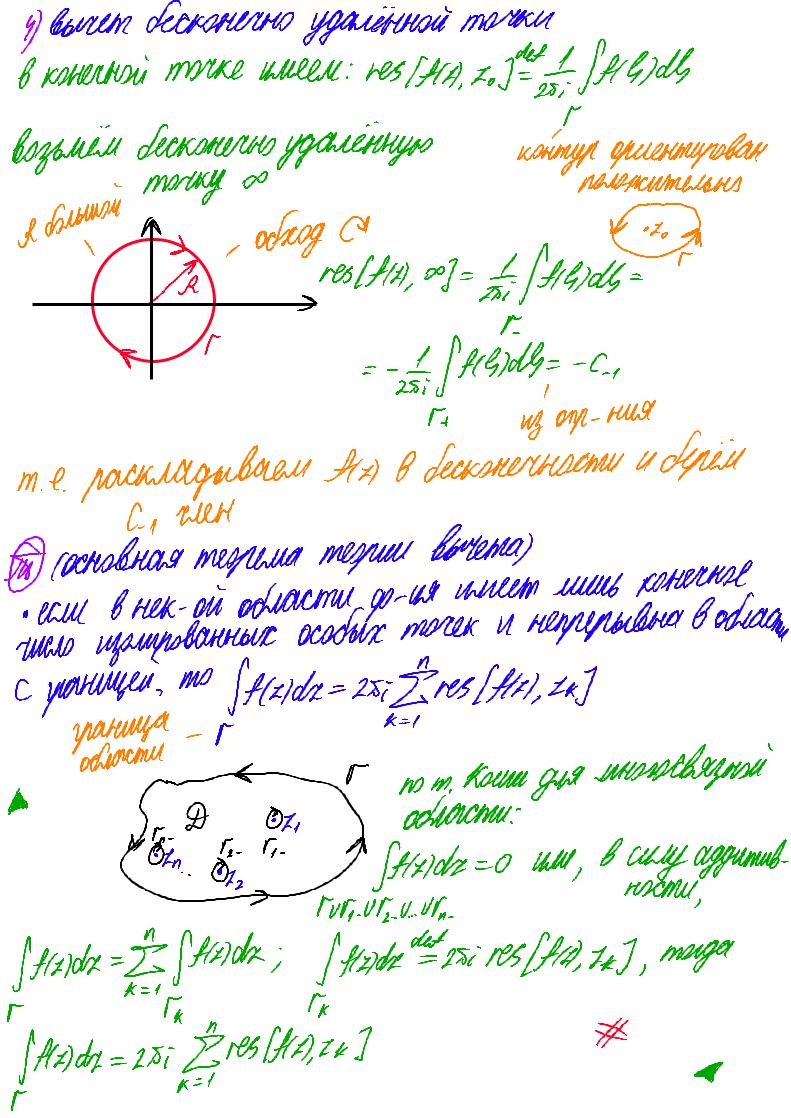 4) вычет бесконечно удалённой точки
в конечной точке имеем: res[f(z), z₀] def= 1/2πi ∫_Γ f(ζ)dζ
возьмём бесконечно удалённую
точку ∞
контур ориентирован
положительно
R большой
обход
·z₀
Γ
R
Γ
res[f(z), ∞] = 1/2πi ∫_Γ₋ f(ζ)dζ =
= -1/2πi ∫_Γ₊ f(ζ)dζ = -C₋₁
из опр-ния
т.е. раскладываем f(z) в бесконечности и берём
C₋₁ член
(основная теорема теории вычета)
· если в нек-ой области ф-ия имеет лишь конечное
число изолированных особых точек и непрерывна в области
с границей, то ∫_Γ f(z)dz = 2πi ∑_{k=1}^n res[f(z), z_k]
граница
области
Γ
D
z₁
Γ₁₋
Γ₂₋
z₂
zₙ
...
по т. Коши для многосвязной
области:
∫_{Γ∪Γ₁₋∪Γ₂₋∪...∪Γₙ₋} f(z)dz = 0 или, в силу аддитив-
ности,
∫_Γ f(z)dz = ∑_{k=1}^n ∫_{Γ_k} f(z)dz; ∫_{Γ_k} f(z)dz def= 2πi res[f(z), z_k], тогда
∫_Γ f(z)dz = 2πi ∑_{k=1}^n res[f(z), z_k]
#